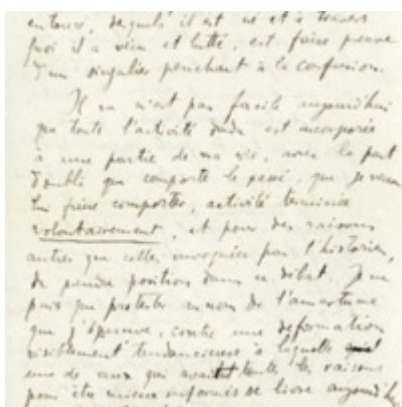 entouré, desquels il est né et à travers
quoi il a vécu et lutté, est faire preuve
d'un singulier penchant à la confusion.
Il ne m'est pas facile aujourd'hui
que toute l'activité dada est incorporée
à une partie de ma vie, avec la part
d'oubli que comporte le passé, que je veux
lui faire comporter, activité terminée
volontairement, et pour des raisons
autres que celles invoquées par l'historien,
de prendre position dans ce débat. Je ne
puis que protester au nom de l'amertume
que j'éprouve, contre une déformation
visiblement tendancieuse à laquelle
un de ceux qui toutes les raisons
pour être mieux informés se livre aujourd'hui